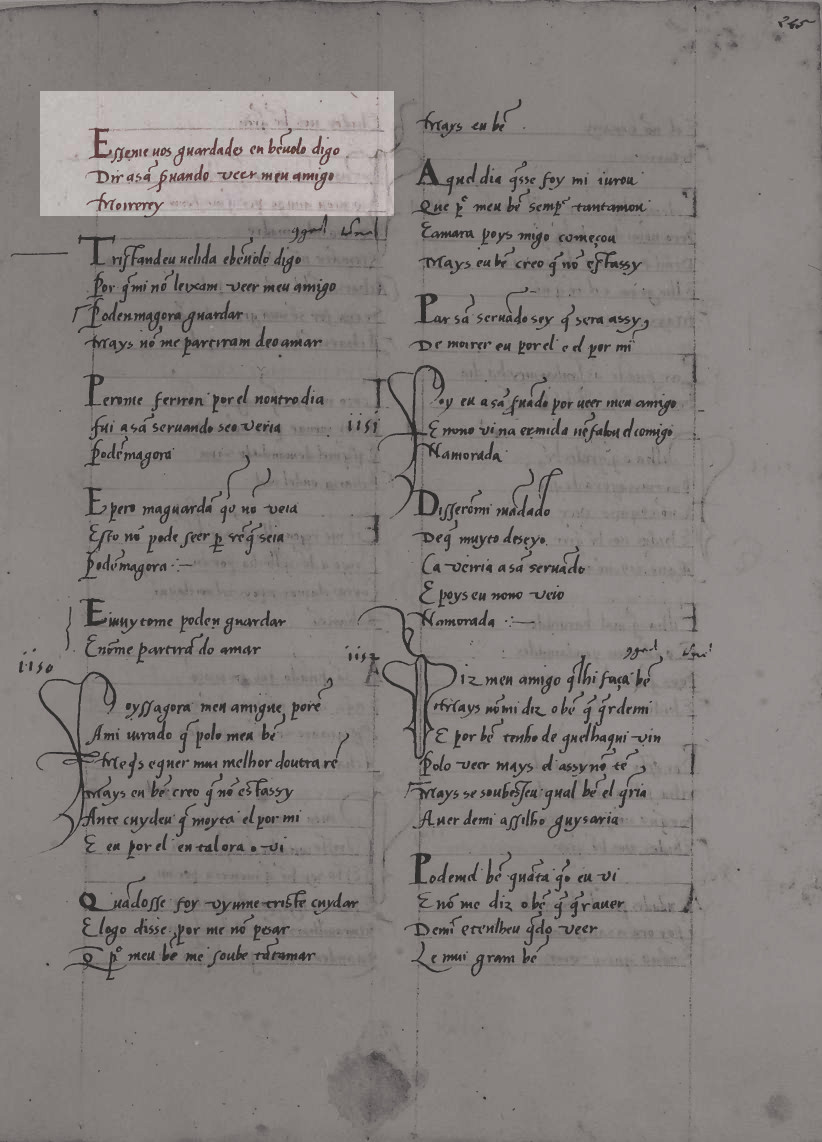 265
Esseme uos guardades en bẽuolo digo
Dir asã ẜuando veer meu amigo
Moirerey
Tristandeu uelida ebẽuolo digo
Por q̃mi nõ leixam veer meu amigo
Podenmagora guardar
Mays nõ me partiram deo amar
Perome feriron por el noutro dia
fui a sã seruando seo ueria
Podẽmagora
Epero maguardã q̃o nõ veia
Esto nõ pode seer per rẽ q̃ seia
Podẽmagora
Emuytome poden guardar
Enõme partirã do amar
1150
Foyssagora meu amigue porẽ
Ami iurado q̃ polo meu bẽ
Me q̃s equer mui melhor doutra rẽ
Mays eu bẽ creo q̃ nõ estassy
Ante cuydeu q̃ moyra el por mi
E eu por el en tal ora o vi
Quãdosse foy vyume triste cuydar
Elogo disse por me nõ pesar
Q̃ pº meu bẽ me soube tãtamar
Mays eu bẽ
Aquel dia q̃sse foy mi iurou
Que pº meu bẽ sempº tantamou
Eamara poys migo começou
Mays eu bẽ creo q̃ nõ estassy
Par sã seruãdo sey q̃ sera assy
De moirer eu por el e el por mi
1151
Foy eu a sã ẜuãdo por ueer meu amigo
E nono vi na ermida nẽ falou el comigo
Namorada
Disserõmi mãdado
De q̃ muyto deseyo
Ca verria a sã seruãdo
E poys eu nono veio
Namorada
1152
Diz meu amigo q̃lhi faça bẽ
Mays nõmi diz o bẽ q̃ q̃r demi
E por bẽ tenho de quelhaqui vin
Polo veer mays el assy nõ tẽ
Mays se soubesseu qual bẽ el q̃ria
Auer demi assilho guysaria
Pedemel bẽ quãta q̃o eu vi
E nõ me diz o bẽ q̃ q̃r auer
Demĩ etenlheu q̃do veer
Le mui gram bẽ